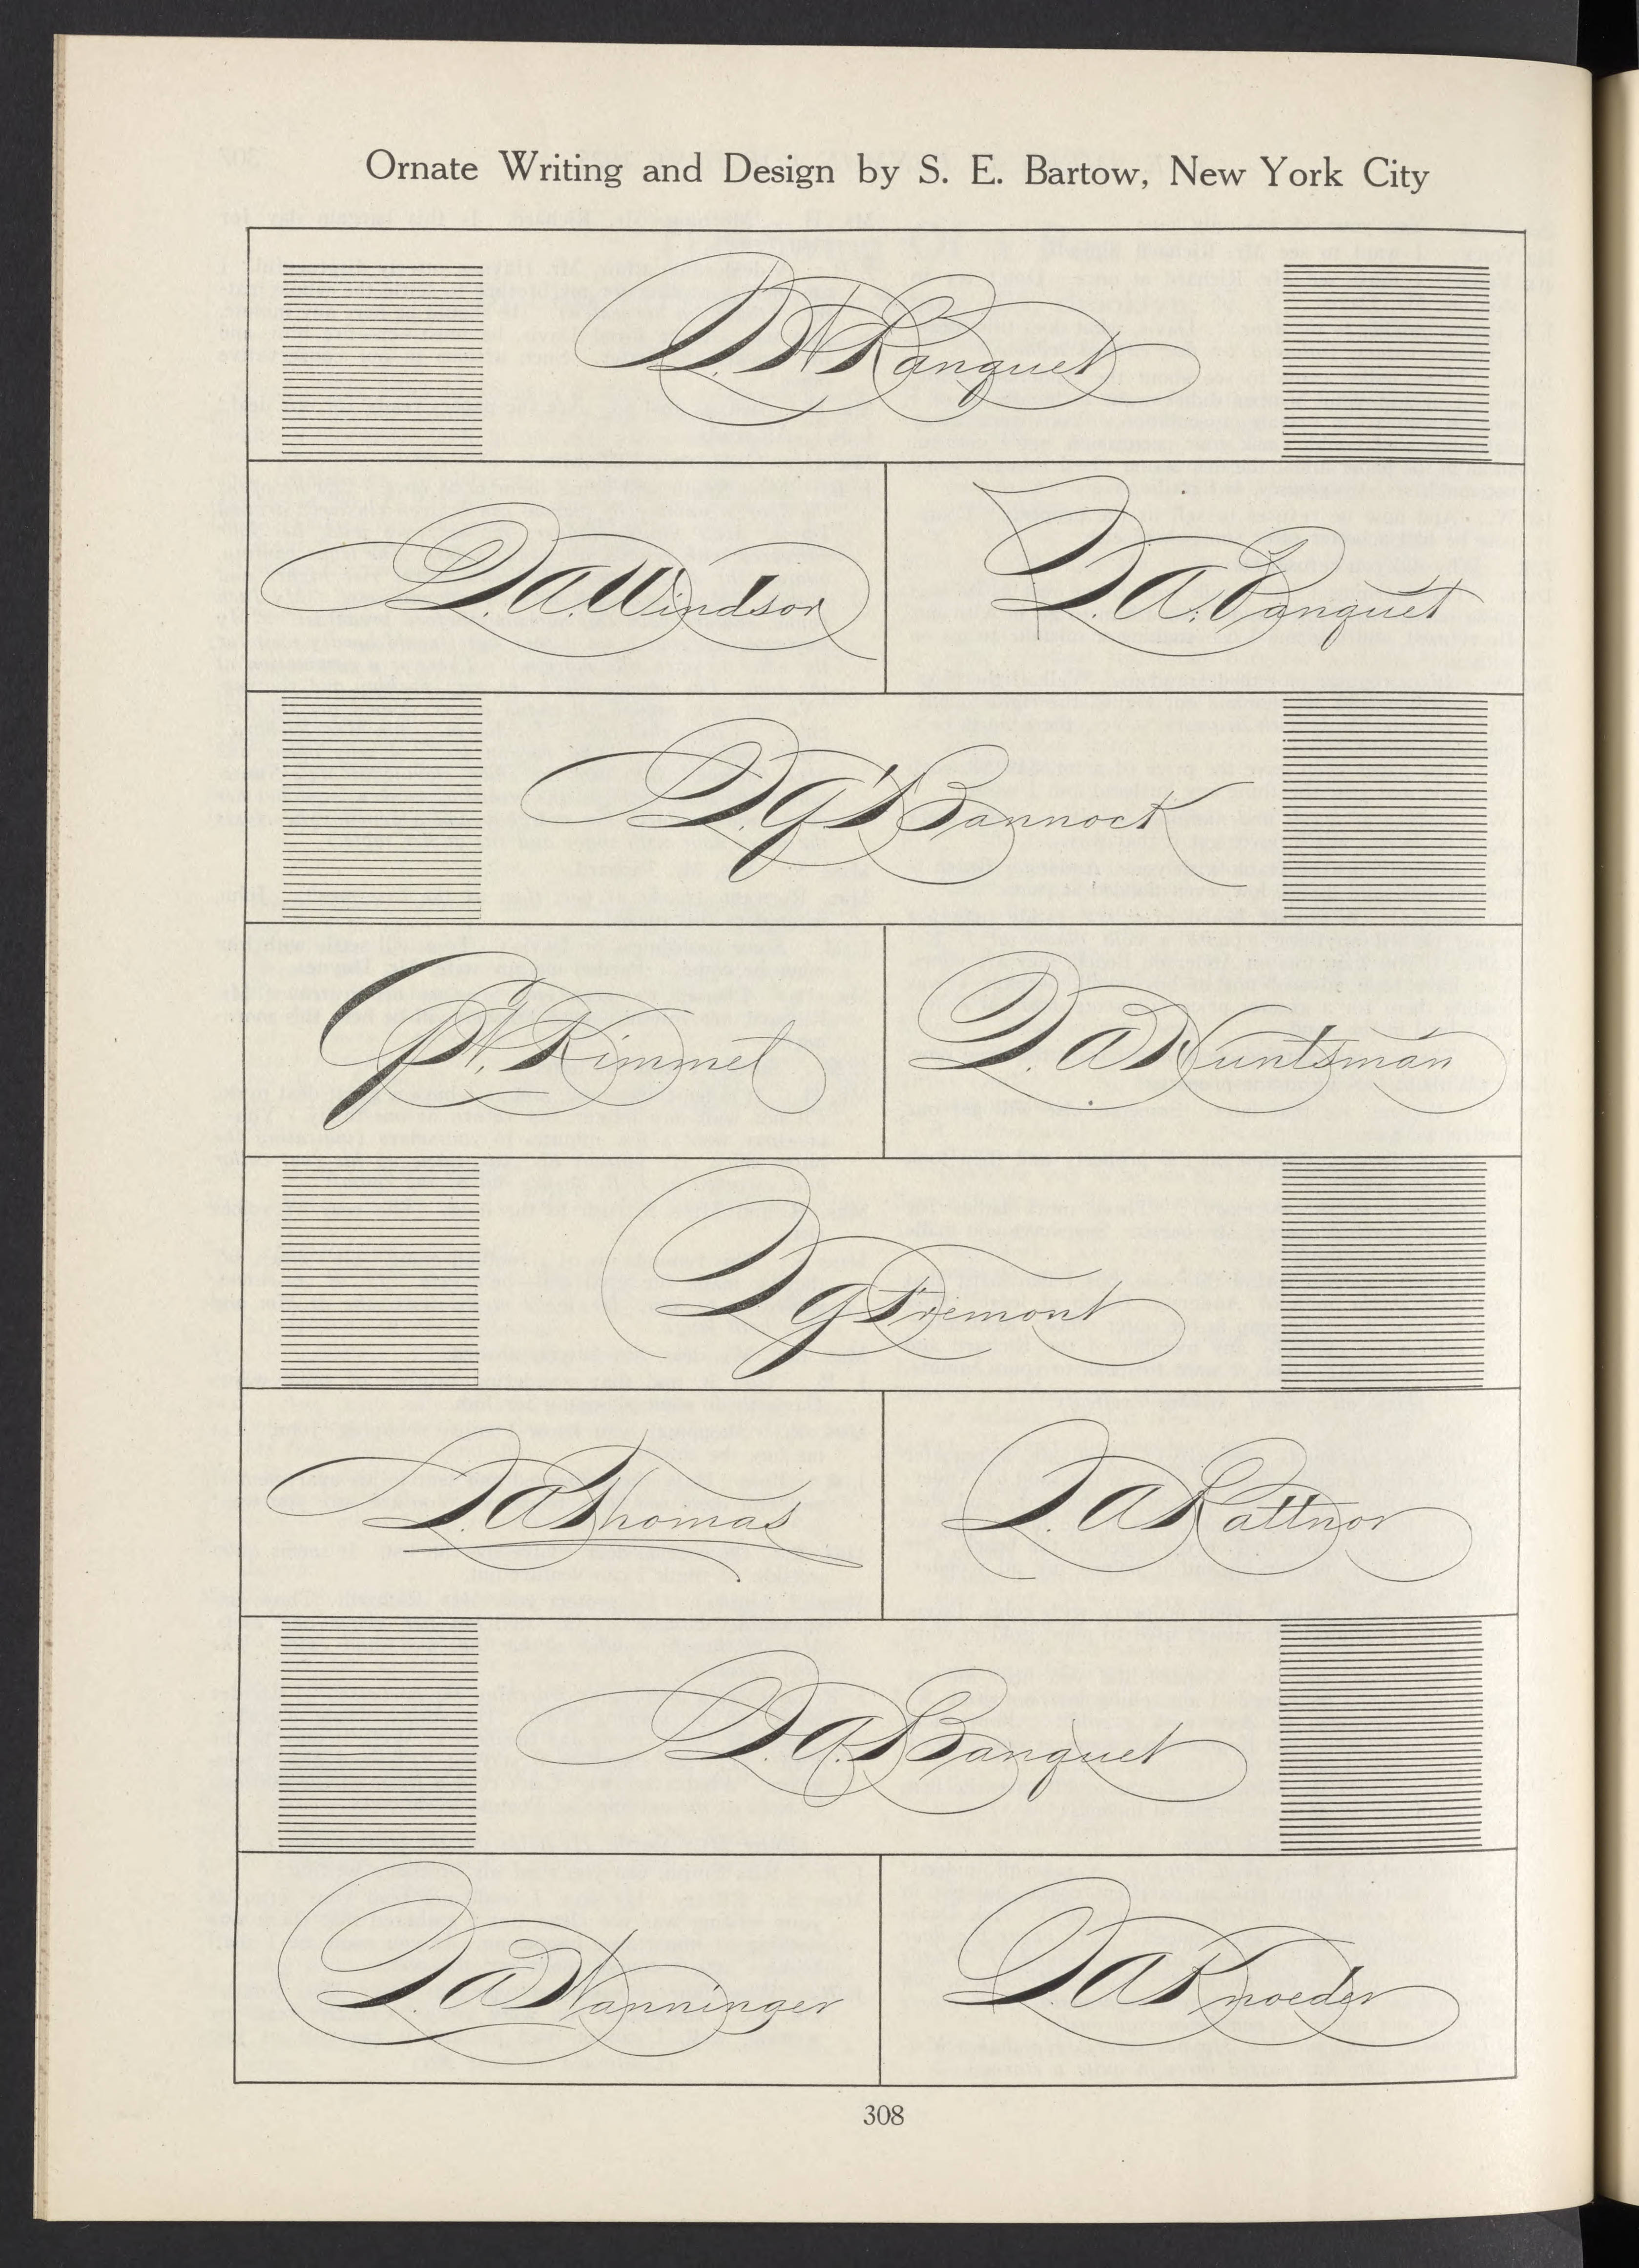 Ornate Writing and Design by S. E. Bartow, New York City
D. W. Ranquet
D. A. Windsor
D. A. Panquet
D. G. Bannock
Kimmel
D. A. Huntsman
D G Fremont
D. A Thomas
D. A Rattnor
D. A. Banquet
D. A Wanninger
D. A Knoeder
308